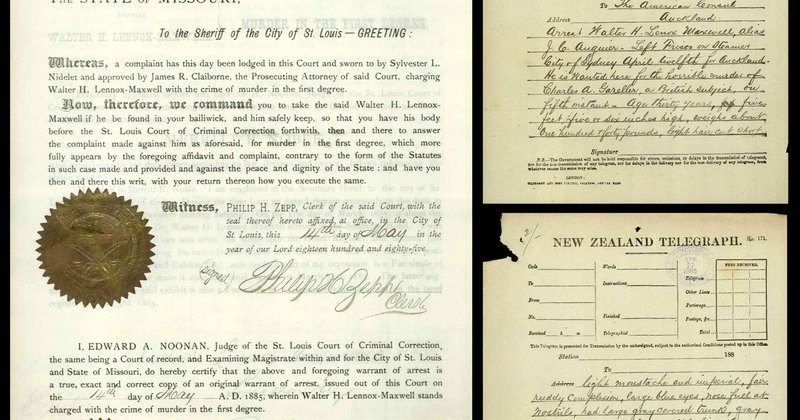 THE STATE OF MISSOURI,
To the Sheriff of the City of St. Louis—GREETING:
Whereas, a complaint has this day been lodged in this Court and sworn to by Sylvester L.
Nidelet and approved by James R. Claiborne, the Prosecuting Attorney of said court, charging
Walter H. Lennox-Maxwell with the crime of murder in the first degree.
Now, therefore, we command you to take the said Walter H. Lennox-
Maxwell if he be found in your bailiwick, and him safely keep, so that you have his body
before the St. Louis Court of Criminal Correction forthwith, then and there to answer
the complaint made against him as aforesaid, for murder in the first degree, which more
fully appears by the foregoing affidavit and complaint, contrary to the form of the Statutes
in such case made and provided and against the peace and dignity of the State: and have you
then and there this writ, with your return thereon how you execute the same.
Witness, PHILIP H. ZEPP, Clerk of the said Court, with the
seal thereof hereto affixed at office, in the City of
St. Louis, this 14th day of May in the
year of our Lord eighteen hundred and eighty-five.
(signed) Philip H Zepp
Clerk
I, EDWARD A. NOONAN, Judge of the St. Louis Court of Criminal Correction,
the same being a Court of record, and Examining Magistrate within and for the City of St. Louis
and State of Missouri, do hereby certify that the above and foregoing warrant of arrest
is a true, exact and correct copy of an original warrant of arrest, issued out of this Court on
the 14th day of May A. D. 1885, wherein Walter H. Lennox-Maxwell stands
charged with the crime of murder in the first degree.
To The American Consul
Address Auckland
Arrest Walter H. Lenox Maxwell, alias
J. C. Auguier - Left Frisco on Steamer
City of Sydney April twelfth for Auckland.
He is Wanted here for the horrible murder of
Charles A. Preller, a British subject, on
fifth instant - Age thirty years, five
feet five or six inches high, weighs about
One hundred & forty pounds, light hair cut short
Signature
N.B.—The Government will not be held responsible for errors, omissions, or delays in the transmission of telegrams,
nor for the non-transmission of any telegram,
2/-
NEW ZEALAND TELEGRAPH. No. 171.
APR
27
1885
Code
Words
FEES RECEIVED.
To
Instructions
Telegram
Other Lines
From
Porterage
No.
Finished
Postage, &c.
Received
Telegraphist
Total
This Telegram is presented for Transmission by the undersigned, subject to the authorised Conditions posted up in this Office.
Station 188
To
Address light moustache and imperial, fair
ruddy complexion, large blue eyes, nose full at
Nostrils, had large gray covered trunk,